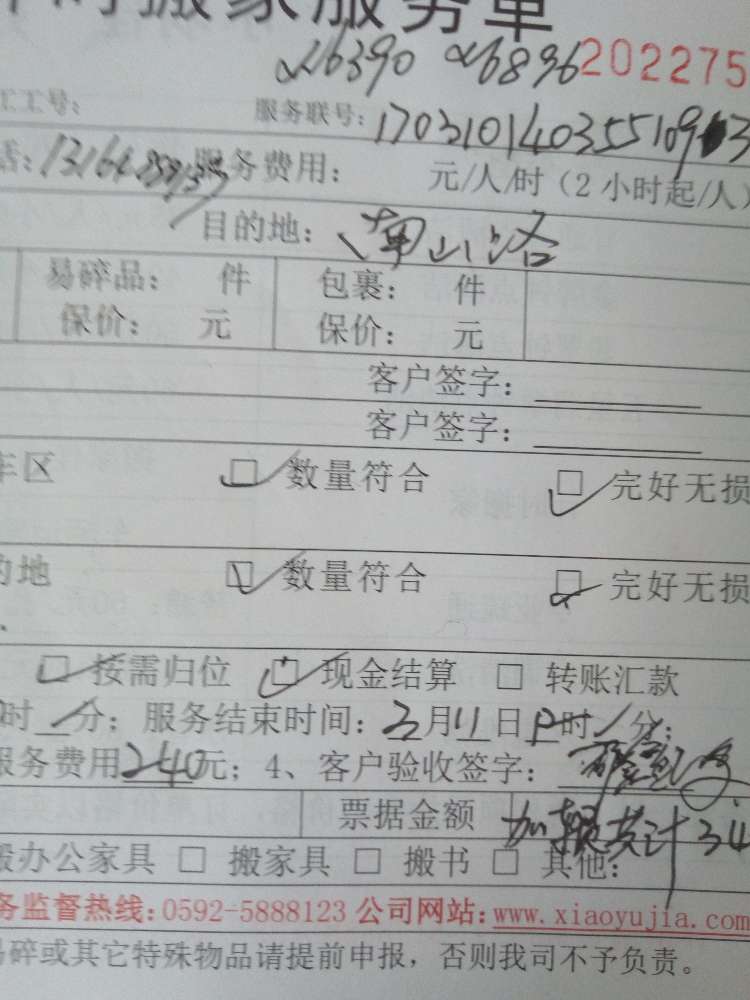 搬家服务单
26390 26896 202275
工工号： 服务联号：
话： 服务费用： 元/人/时（2小时起/人）
目的地： 南山路
易碎品： 件 包裹： 件
保价： 元 保价： 元
客户签字：
客户签字：
车区 □ 数量符合 □ 完好无损
的地 □ 数量符合 □ 完好无损
□ 按需归位 □ 现金结算 □ 转账汇款
时 分；服务结束时间： 月11日 时 分；
服务费用240元；4、客户验收签字：
票据金额 共计34
搬办公家具 □ 搬家具 □ 搬书 □ 其他：
务监督热线：0592-5888123 公司网站：www.xiaoyujia.com
易碎或其它特殊物品请提前申报，否则我司不予负责。